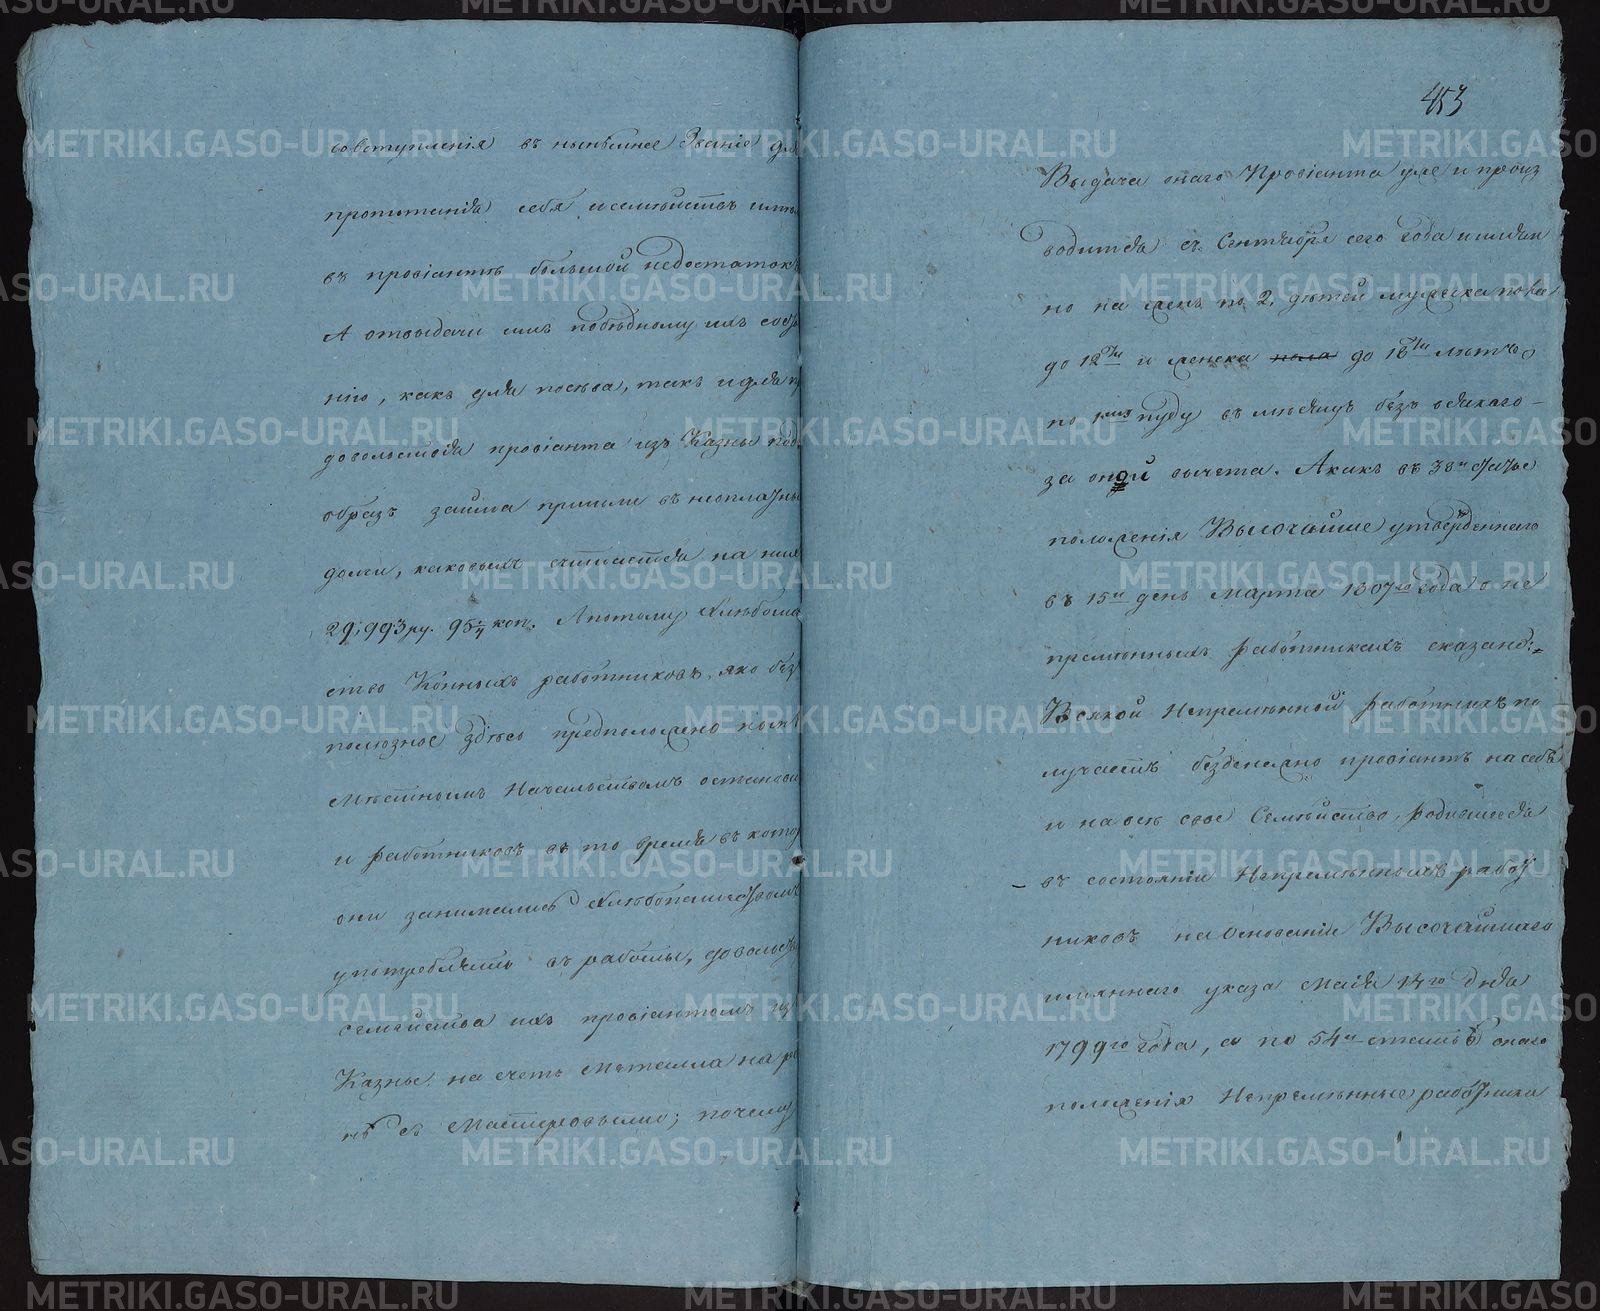 совступленія въ нынѣшнее Званіе для
пропитанія себя исемѣйствъ имѣли
въ провіантѣ большой недостатокъ
А отвыдачи имъ побѣдному ихъ состо
нію, какъ для посѣва, такъ идля п
довольствія провіанта изъ Казны подъ
образъ займа пришли въ неоплатные
долги, каковыхъ считается на нихъ
29,993 ру. коп. Апотому Хлѣбопа
ство Конныхъ работниковъ, яко без
полюзное здѣсь предположено нынѣ
Мѣстнымъ Начальствомъ останови
и работниковъ въ то время въ кото
они занимались Хлѣбопашествомъ
употреблять въ работы, довольствуя
семейства ихъ провіантомъ изъ
Казны на счетъ Металла на ра
нѣ съ Мастеровыми; почему
453
Выдача онаго Провіанта уже и произ
водится съ Сентября сего года имян
но на женъ по 2, дѣтей мужеска пола
до 12ти и женска пола до 16ти лѣтъ
по 1му пуду въ мѣсяцъ безъ всякаго
за оной вычета. Акакъ въ 38й статье
положенія Высочайше утвержденнаго
въ 15й день Марта 1807го года о не
премѣнныхъ работникахъ сказано:
Всякой Непремѣнной работникъ по
лучаетъ безденежно провіантъ на себя
и на все свое Семѣйство, родившееся
въ состояніи Непремѣнныхъ работ
никовъ на основаніи Высочайшаго
имяннаго указа Маія 14го дня
1799го года, а по 54й статьѣ онаго
положенія Непремѣнные работники